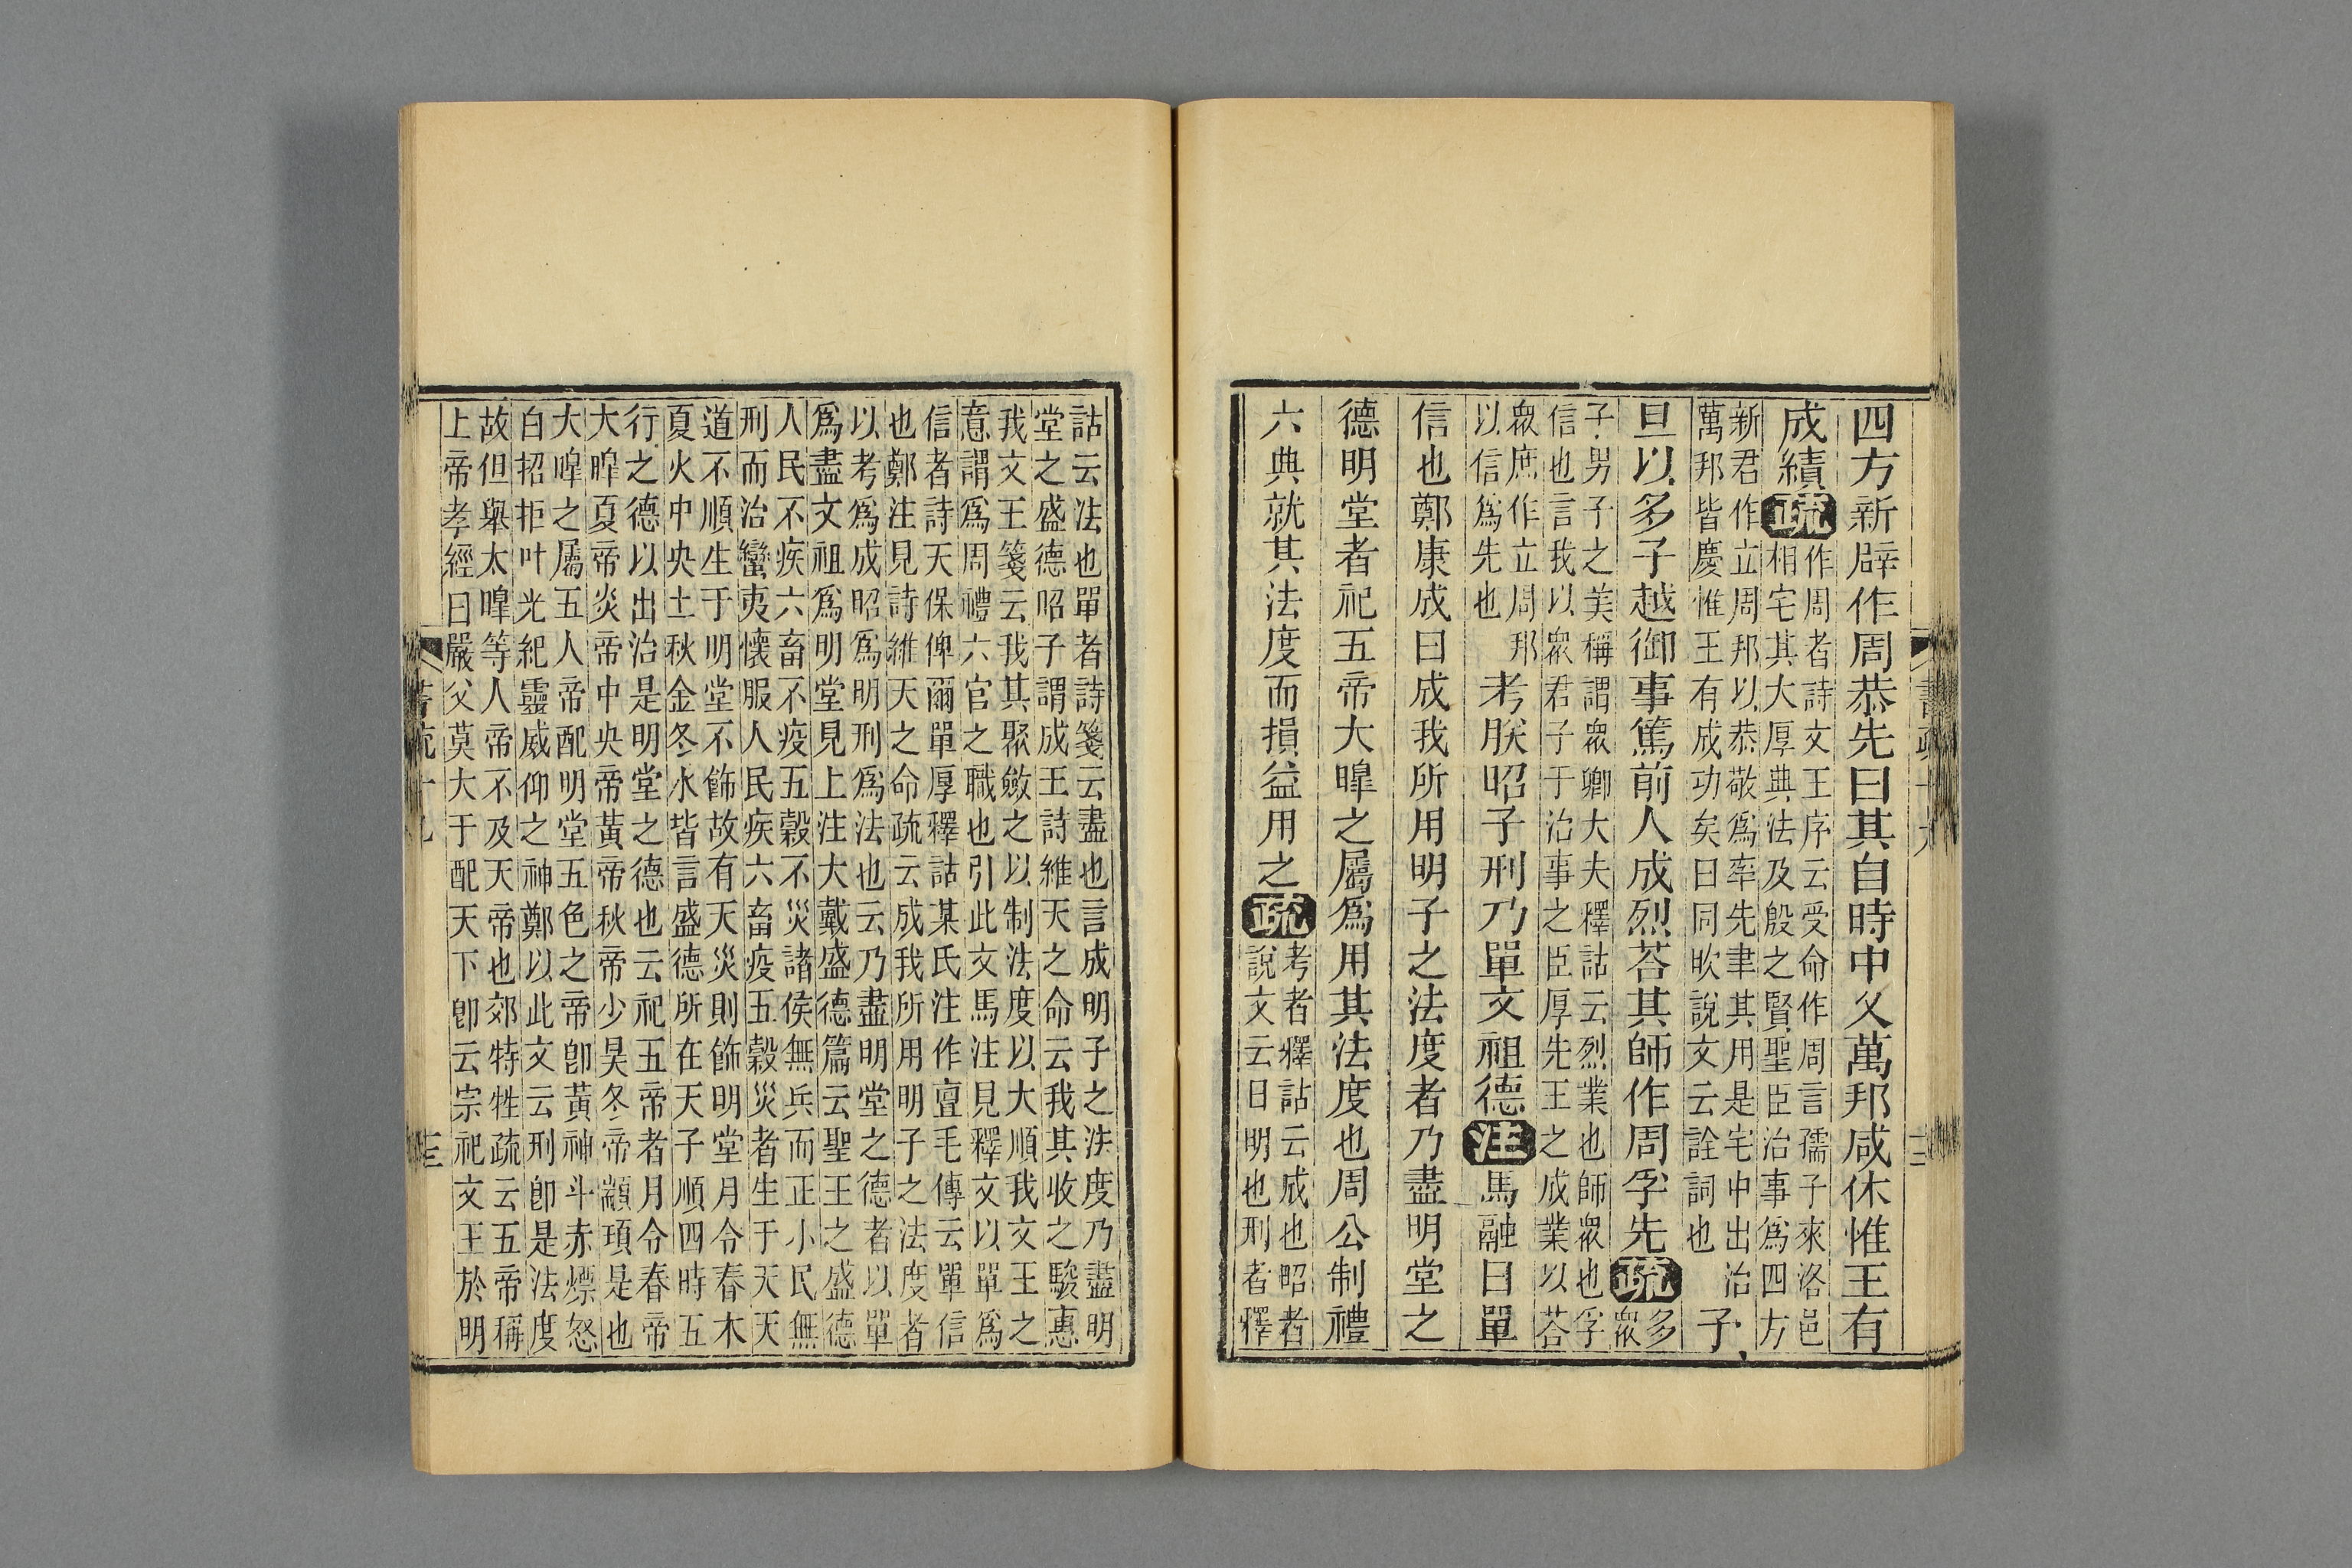 四方新辟作周恭先曰其自時中乂萬邦咸休惟王有
成績疏
作周者詩文王序云受命作周言孺子來洛邑
相宅其大厚典法及殷之賢聖臣治事爲四方
新君作立周邦以恭敬爲率先聿其用是宅中出治
萬邦皆慶惟王有成功矣曰同欥說文云詮詞也
予
旦以多子越御事篤前人成烈荅其師作周孚先疏
多
眾
子男子之美稱謂眾卿大夫釋詁云烈業也師眾也孚
信也言我以眾君子于治事之臣厚先王之成業以荅
眾庶作立周邦
以信爲先也
考朕昭子刑乃單文祖德注馬融曰單
信也鄭康成曰成我所用明子之法度者乃盡明堂之
德明堂者祀五帝大暤之屬爲用其法度也周公制禮
六典就其法度而損益用之疏
考者釋詁云成也昭者
說文云日明也刑者釋
詁云法也單者詩箋云盡也言成明子之法度乃盡明
堂之盛德昭子謂成王詩維天之命云我其收之駿惠
我文王箋云我其聚斂之以制法度以大順我文王之
意謂爲周禮六官之職也引此文馬注見釋文以單爲
信者詩天保俾爾單厚釋詁某氏注作亶毛傳云單信
也鄭注見詩維天之命疏云成我所用明子之法度者
以考爲成昭爲明刑爲法也云乃盡明堂之德者以單
爲盡文祖爲明堂見上注大戴盛德篇云聖王之盛德
人民不疾六畜不疫五穀不災諸侯無兵而正小民無
刑而治蠻夷懷服人民疾六畜疫五穀災者生于天天
道不順生于明堂不飾故有天災則飾明堂月令春木
夏火中央土秋金冬水皆言盛德所在天子順四時五
行之德以出治是明堂之德也云祀五帝者月令春帝
大暤夏帝炎帝中央帝黃帝秋帝少昊冬帝顓頊是也
大暤之屬五人帝配明堂五色之帝卽黃神斗赤熛怒
白招拒叶光紀靈威仰之神鄭以此文云刑卽是法度
故但舉太暤等人帝不及天帝也郊特牲疏云五帝稱
上帝孝經曰嚴父莫大于配天下卽云宗祀文王於明